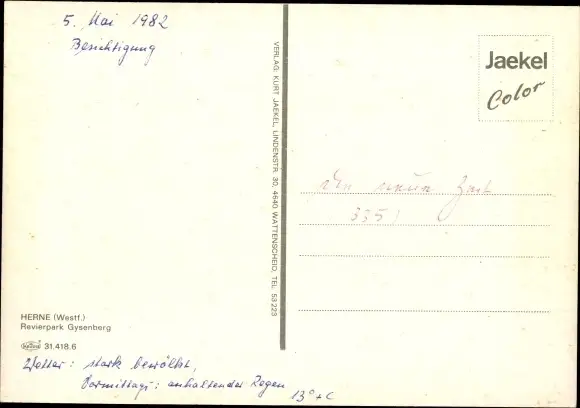 5. Mai 1982
Besichtigung
VERLAG: KURT JAEKEL, LINDENSTR. 30, 4640 WATTENSCHEID, TEL. 53 223
Jaekel
Color
neue
335)
HERNE (Westf.)
Revierpark Gysenberg
31.418.6
Wetter: stark bewölkt,
Vormittags: anhaltender Regen
13° + C